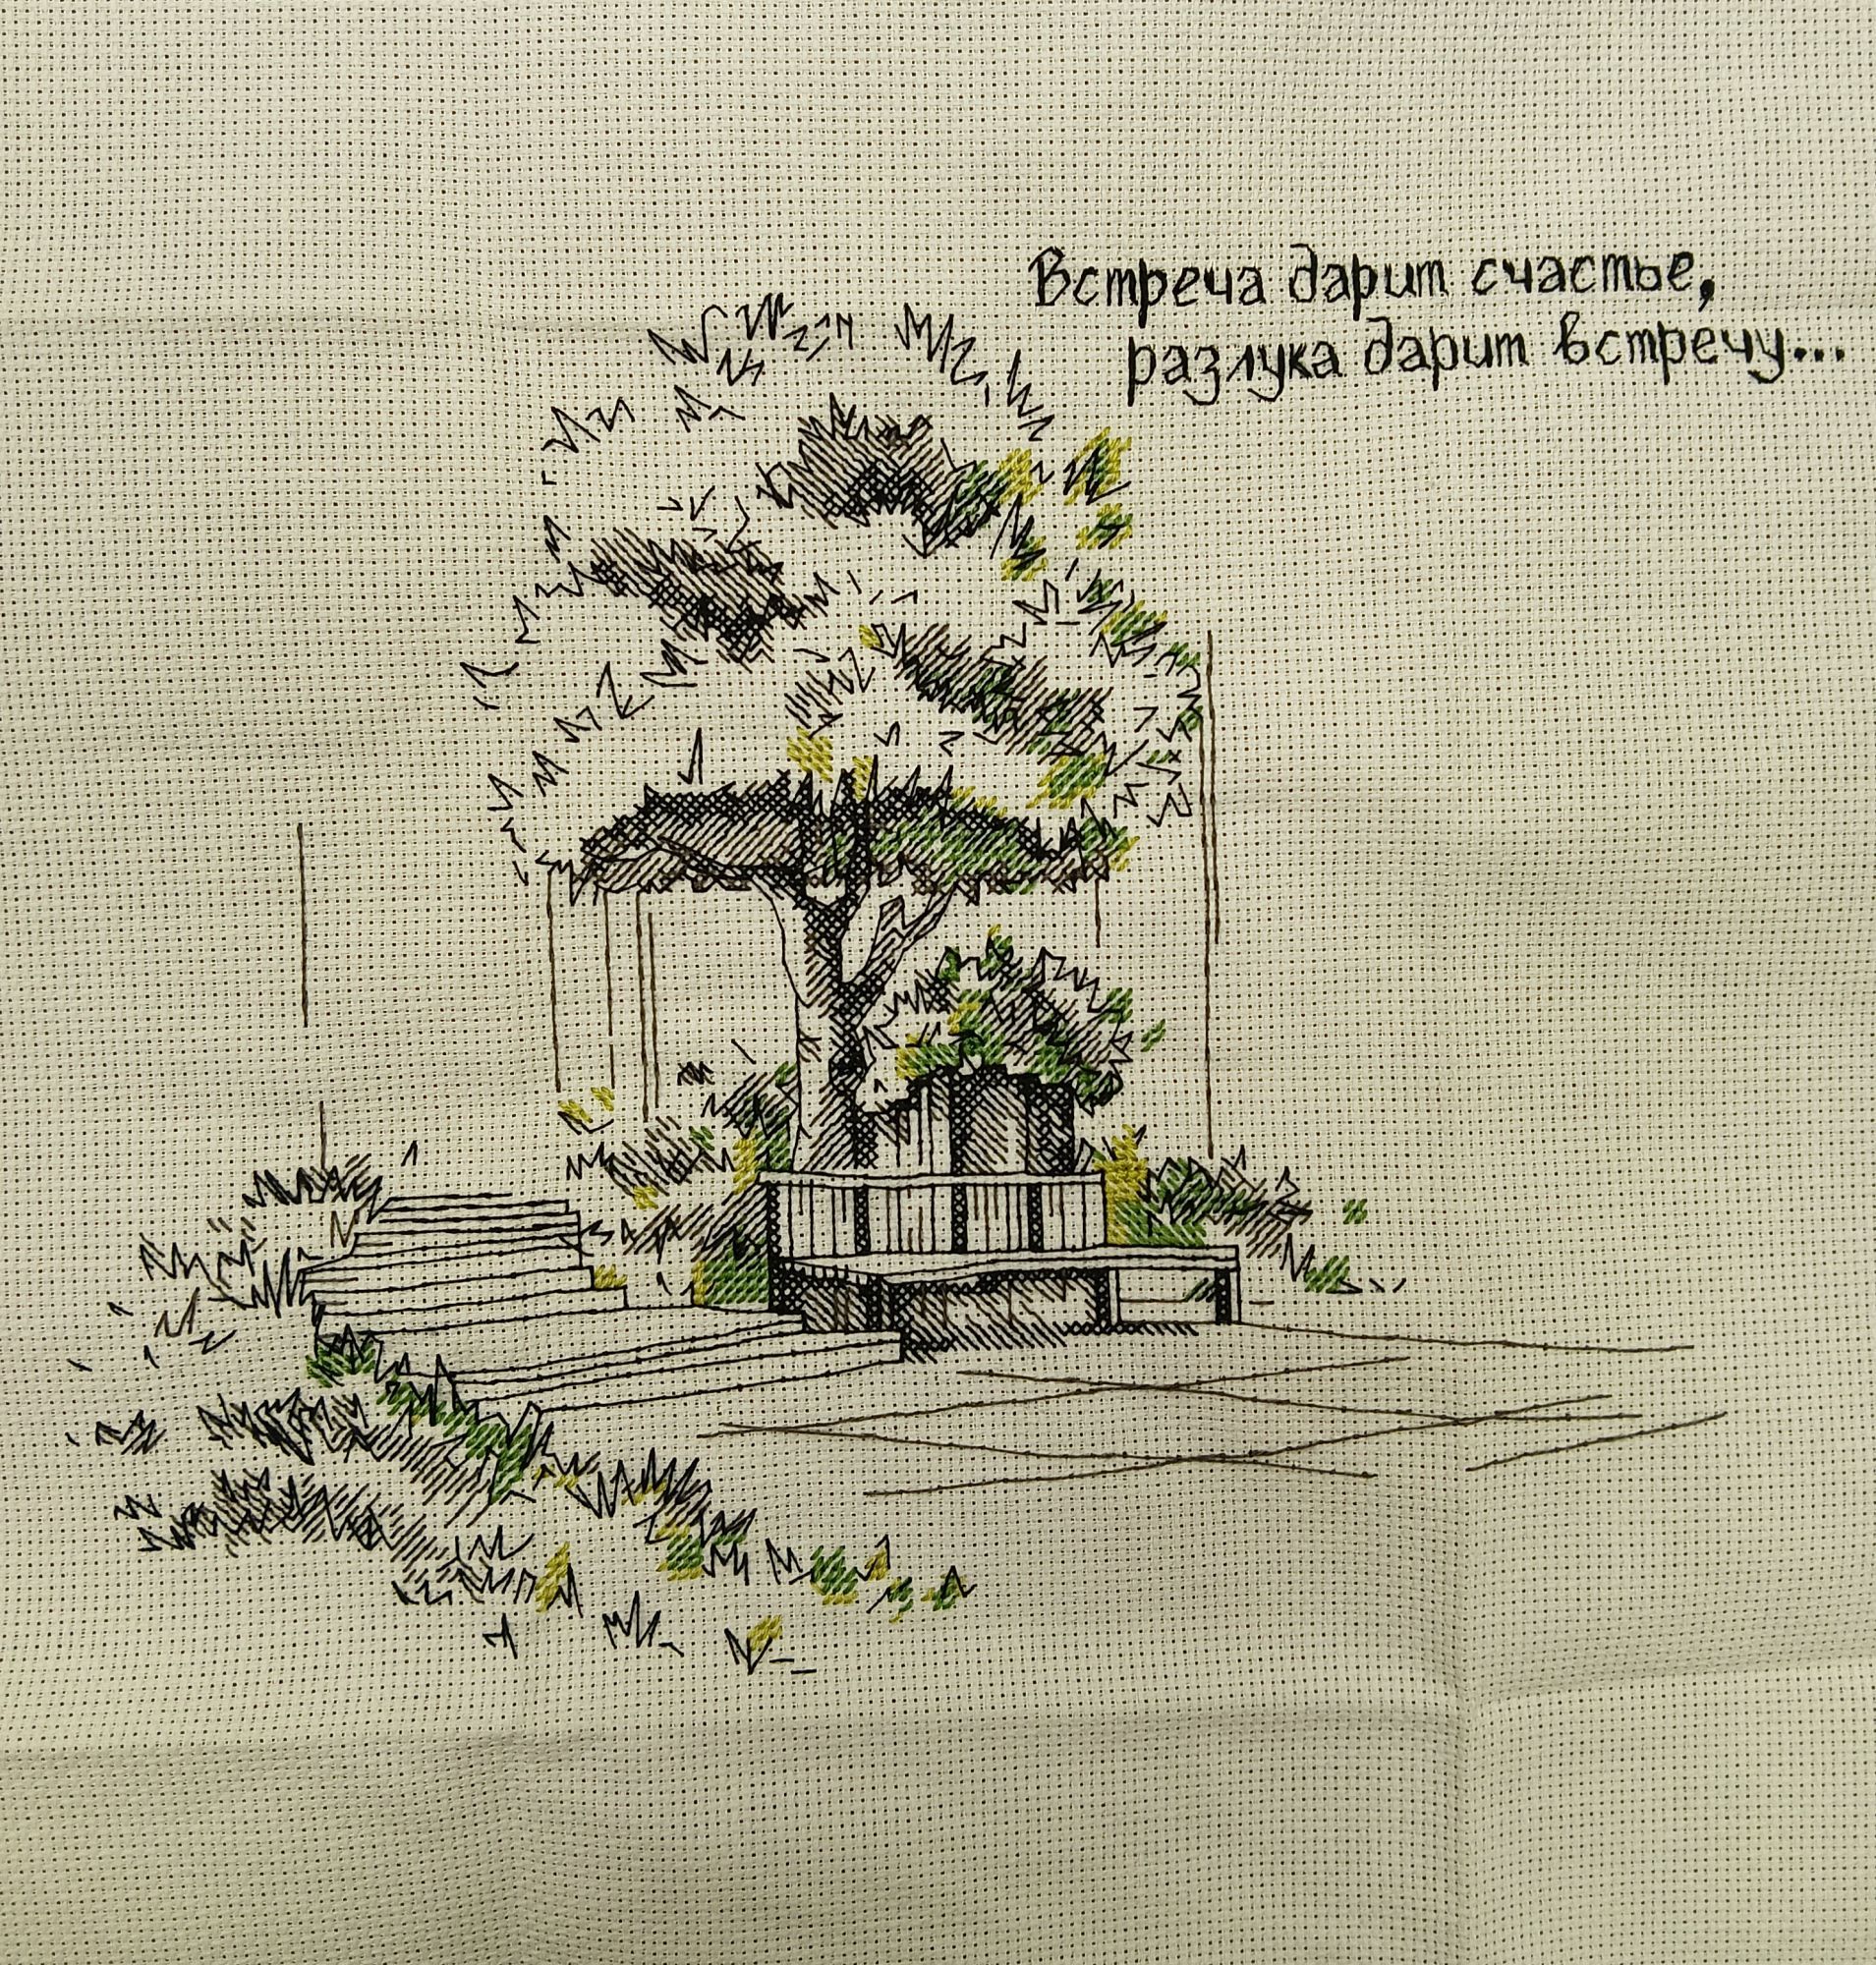 Встреча дарит счастье,
разлука дарит встречу...